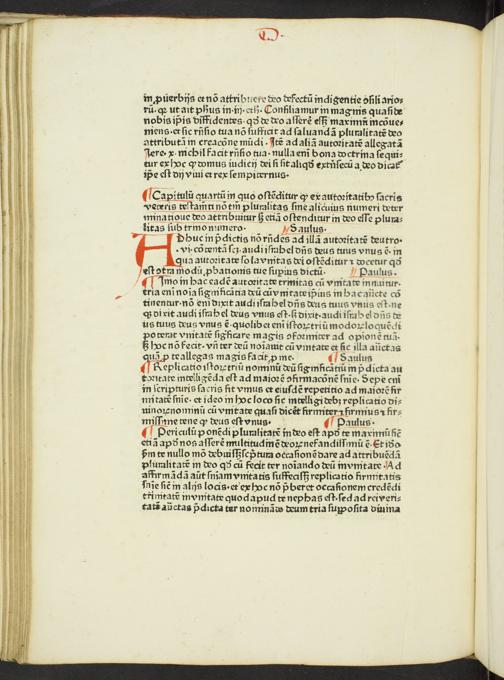 D.
in ꝓuerbijs et nō attribuere deo defectū indigentie ɔsilij ario-
rū. qꝫ ut ait pħus in .iij. eth. Consiliamur in magnis quasi de
nobis ip̄is diffidentes. qd̄ de deo asserē ess̄ maximū incōue-
niens. et sic rn̄sio tua nō sufficit ad saluandā pluralitatē deo
attributā in creacōne mūdi. Itē ad aliā autoritatē allegatā
Jere. x. nichil facit rn̄sio tua. nulla em̄ bona doctrina sequi-
tur ex hoc qꝫ domus iudicij dei
ip̄e est dn̄s viui et rex sempiternus.
Capitulū quartū in quo ostēditur qꝫ ex autoritatibꝫ sacris
veteris testamēti nō tm̄ pluralitas sine alicuius numeri deter
minatione deo attribuitur sꝫ etiā ostenditur in deo esse plura-
litas sub trino numero. Saulus.
ADhuc in p̄dictis nō rn̄des ad illā autoritatē deutro-
.vi. cōtentā sci. audi israhel dn̄s deus tuus vnus ē. in
qua autoritate sola vnitas dei ostēditur et docetur qd̄
est ɔtra modū ꝓbationis tue supius dictū. Paulus.
Imo in hac eadē autoritate trinitas cū vnitate innuitur.
tria em̄ noīa significātia deū cū vnitate ip̄ius in hac aūcte cō
tinentur. nō em̄ dixit audi israhel deus tuus vnus est. ne
qꝫ dixit audi israhel deus vnus est. sꝫ dixit. audi israhel dn̄s de
us tuus deus vnus ē. quolibet em̄ istorū triū modorū loquēdi
poterat vnitatē significare magis ɔformiter ad opionē tuā.
sꝫ hoc nō fecit. vn̄ ter deū noīauit cū vnitate et sic illa aūctas
quā p te allegas magis facit ꝓ me. Saulus
Replicatio istorū triū nominū deū significātiū in p̄dicta au
toritate intelligēda est ad maiorē ɔfirmacōnē snīe. Sepe em̄
in scripturis sacris fit vnius et eiusdē repetitio ad maiorē fir
mitatē snīe. et ideo in hoc loco sic intelligi debꝫ replicatio di-
uinorū nominū cū vnitate quasi dicēt firmiter et firmius et fir-
missime tene qꝫ deus est vnus. Paulus.
Periculū ponēdi pluralitatē in deo est apd̄ te maximū sic
etiā apd̄ nos asserē multitudinē deorū nefandissimū ē. Et idō
p̄m te nullo mō debuiss̄ scptura occasionē dare ad attribuēdā
pluralitatē in deo qd̄ cū fecit ter noīando deū in vnitate. Ad
affirmādā aūt snīam vnitatis suffeciss̄ replicatio firmitatis
snīe sic in alijs locis. et ex hoc nō p̄beret occasionem credēdi
trinitatē in vnitate quod apud te nephas est. sed ad rei veri-
tatē aūctas p̄dicta ter nominādo deum tria supposita diuina